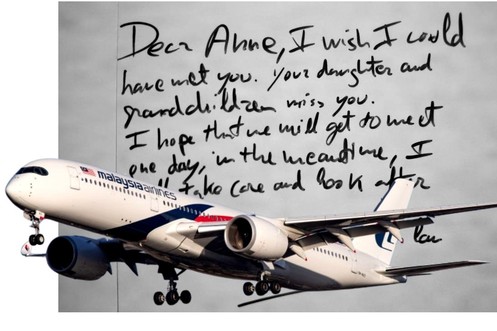 Dear Anne, I wish I could
have met you. Your daughter and
grandchildren miss you.
I hope that we will get to meet
one day, in the meantime, I
take care and look after
malaysia airlines